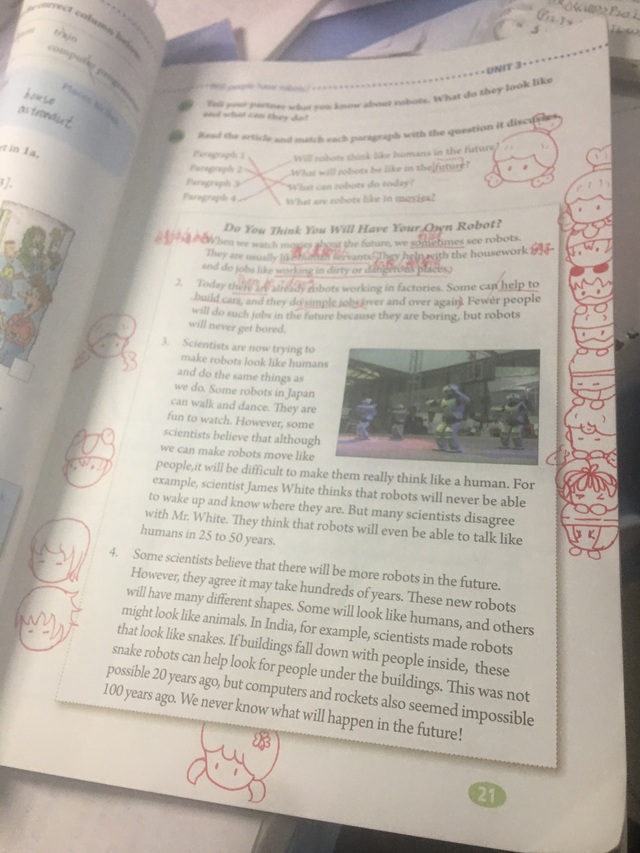 correct column below.
train
computer programmer
Places to live
house
rt in 1a.
UNIT 3
Will people have robots?
Tell your partner what you know about robots. What do they look like
and what can they do?
Read the article and match each paragraph with the question it discusses.
Paragraph 1 Will robots think like humans in the future?
Paragraph 2 What will robots be like in the future?
Paragraph 3 What can robots do today?
Paragraph 4 What are robots like in movies?
Do You Think You Will Have Your Own Robot?
When we watch movies about the future, we sometimes see robots.
They are usually like human servants. They help with the housework
and do jobs like working in dirty or dangerous places.
2. Today there are already robots working in factories. Some can help to
build cars, and they do simple jobs over and over again. Fewer people
will do such jobs in the future because they are boring, but robots
will never get bored.
3. Scientists are now trying to
make robots look like humans
and do the same things as
we do. Some robots in Japan
can walk and dance. They are
fun to watch. However, some
scientists believe that although
we can make robots move like
people,it will be difficult to make them really think like a human. For
example, scientist James White thinks that robots will never be able
to wake up and know where they are. But many scientists disagree
with Mr. White. They think that robots will even be able to talk like
humans in 25 to 50 years.
4. Some scientists believe that there will be more robots in the future.
However, they agree it may take hundreds of years. These new robots
will have many different shapes. Some will look like humans, and others
might look like animals. In India, for example, scientists made robots
that look like snakes. If buildings fall down with people inside, these
snake robots can help look for people under the buildings. This was not
possible 20 years ago, but computers and rockets also seemed impossible
100 years ago. We never know what will happen in the future!
21